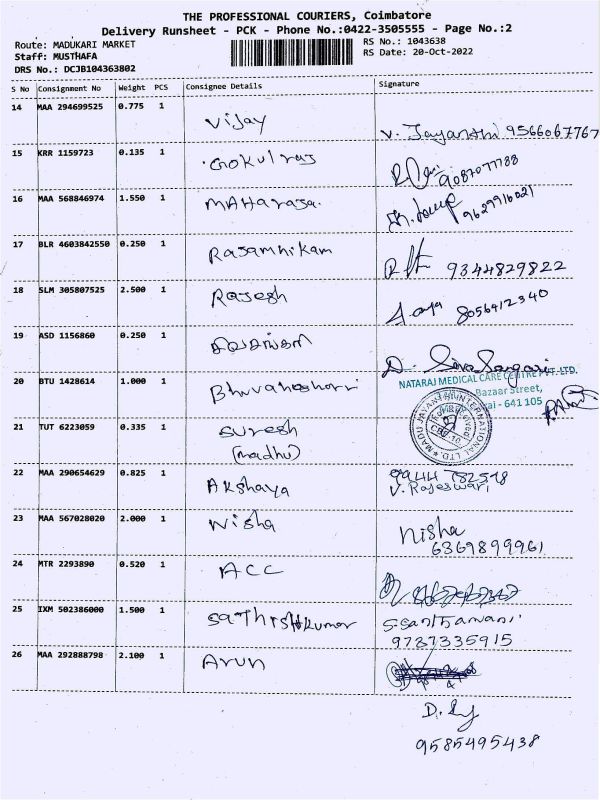 THE PROFESSIONAL COURIERS, Coimbatore
Delivery Runsheet - PCK - Phone No.:0422-3505555 - Page No.:2
Route: MADUKARI MARKET
RS No.: 1043638
Staff: MUSTHAFA
RS Date: 20-Oct-2022
DRS No.: DCJB104363802
S No Consignment No Weight PCS Consignee Details Signature
14 MAA 294699525 0.775 1 Vijay V. Jayanthi 9566067767
15 KRR 1159723 0.135 1 Gokulraj 9087077788
16 MAA 568846974 1.550 1 MAHaraja. 9629916021
17 BLR 4603842550 0.250 1 Rajamnikam 9344829822
18 SLM 305807525 2.500 1 Rajesh 8056412340
19 ASD 1156860 0.250 1 சிவசங்கரி D. Siva Sangari
20 BTU 1428614 1.000 1 Bhuvaneshwari
NATARAJ MEDICAL CARE CENTRE PVT. LTD.
Bazaar Street,
641 105
21 TUT 6223059 0.335 1 Suresh
(madhu)
MADU JAYANTHI INTERNATIONAL LTD.
22 MAA 290654629 0.825 1 Akshaya 9944 782518
V. Rajeswari
23 MAA 567028020 2.000 1 Nisha Nisha
6369899961
24 MTR 2293890 0.520 1 ACC
25 IXM 502386000 1.500 1 SaThisHkumar S. Santhamani
9787335915
26 MAA 292888798 2.100 1 Arun
9585495438